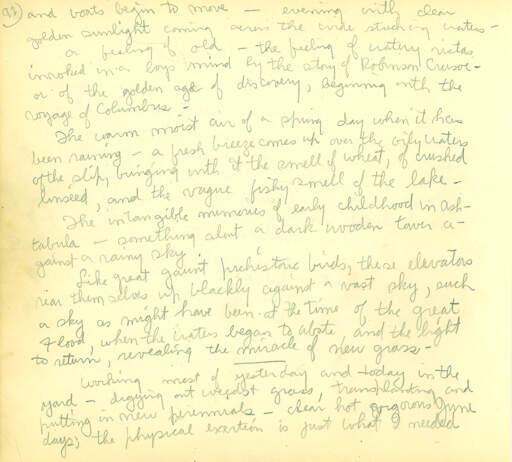 93) and boats begin to move — evening with clear
golden sunlight coming across the wide stretching waters —
a feeling of old — the feeling of watery vistas
invoked in a boys mind by the story of Robinson Crusoe —
or of the golden age of discovery, beginning with the
voyage of Columbus —
The warm moist air of a spring day when it has
been raining — a fresh breeze comes up over the oily waters
of the slip, bringing with it the smell of wheat, of crushed
linseed, and the vague fishy smell of the lake —
The intangible memories of early childhood in Ash-
tabula — something about a dark wooden tower a-
gainst a rainy sky.
Like great gaunt prehistoric birds, these elevators
rear themselves up blackly against a vast sky, such
a sky as might have been at the time of the great
flood, when the waters began to abate and the light
to return, revealing the miracle of new grass —
Working most of yesterday and today in the
yard — digging out weeds & grass, transplanting and
putting in new perennials — clear hot gorgorous June
days; the physical exertion is just what I needed